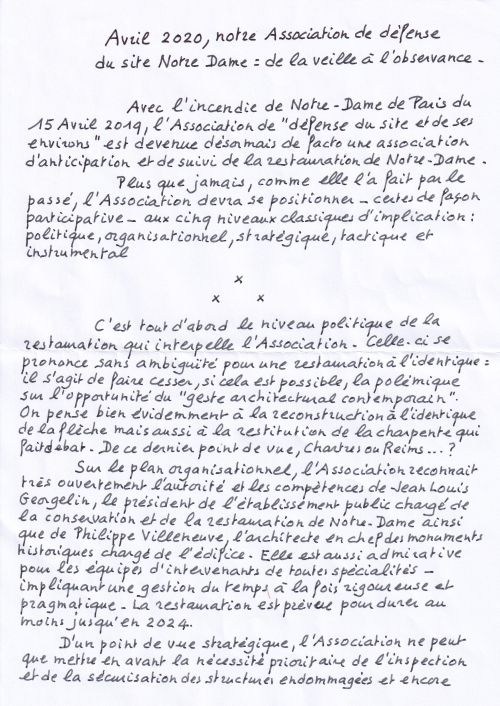 Avril 2020, notre Association de défense
du site Notre Dame : de la veille à l'observance.
Avec l'incendie de Notre-Dame de Paris du
15 Avril 2019, l'Association de "défense du site et de ses
environs" est devenue désormais de facto une association
d'anticipation et de suivi de la restauration de Notre-Dame.
Plus que jamais, comme elle l'a fait par le
passé, l'Association devra se positionner - certes de façon
participative - aux cinq niveaux classiques d'implication :
politique, organisationnel, stratégique, tactique et
instrumental
x
x x
C'est tout d'abord le niveau politique de la
restauration qui interpelle l'Association. Celle-ci se
prononce sans ambiguïté pour une restauration à l'identique :
il s'agit de faire cesser, si cela est possible, la polémique
sur l'opportunité du "geste architectural contemporain".
On pense bien évidemment à la reconstruction à l'identique
de la flèche mais aussi à la restitution de la charpente qui
fait débat. De ce dernier point de vue, Chartres ou Reims...?
Sur le plan organisationnel, l'Association reconnait
très ouvertement l'autorité et les compétences de Jean Louis
Georgelin, le président de l'établissement public chargé de
la conservation et de la restauration de Notre-Dame ainsi
que de Philippe Villeneuve, l'architecte en chef des monuments
historiques chargé de l'édifice. Elle est aussi admirative
pour les équipes d'intervenants de toutes spécialités -
impliquant une gestion du temps à la fois rigoureuse et
pragmatique. La restauration est prévue pour durer au
moins jusqu'en 2024.
D'un point de vue stratégique, l'Association ne peut
que mettre en avant la nécessité prioritaire de l'inspection
et de la sécurisation des structures endommagées et encore